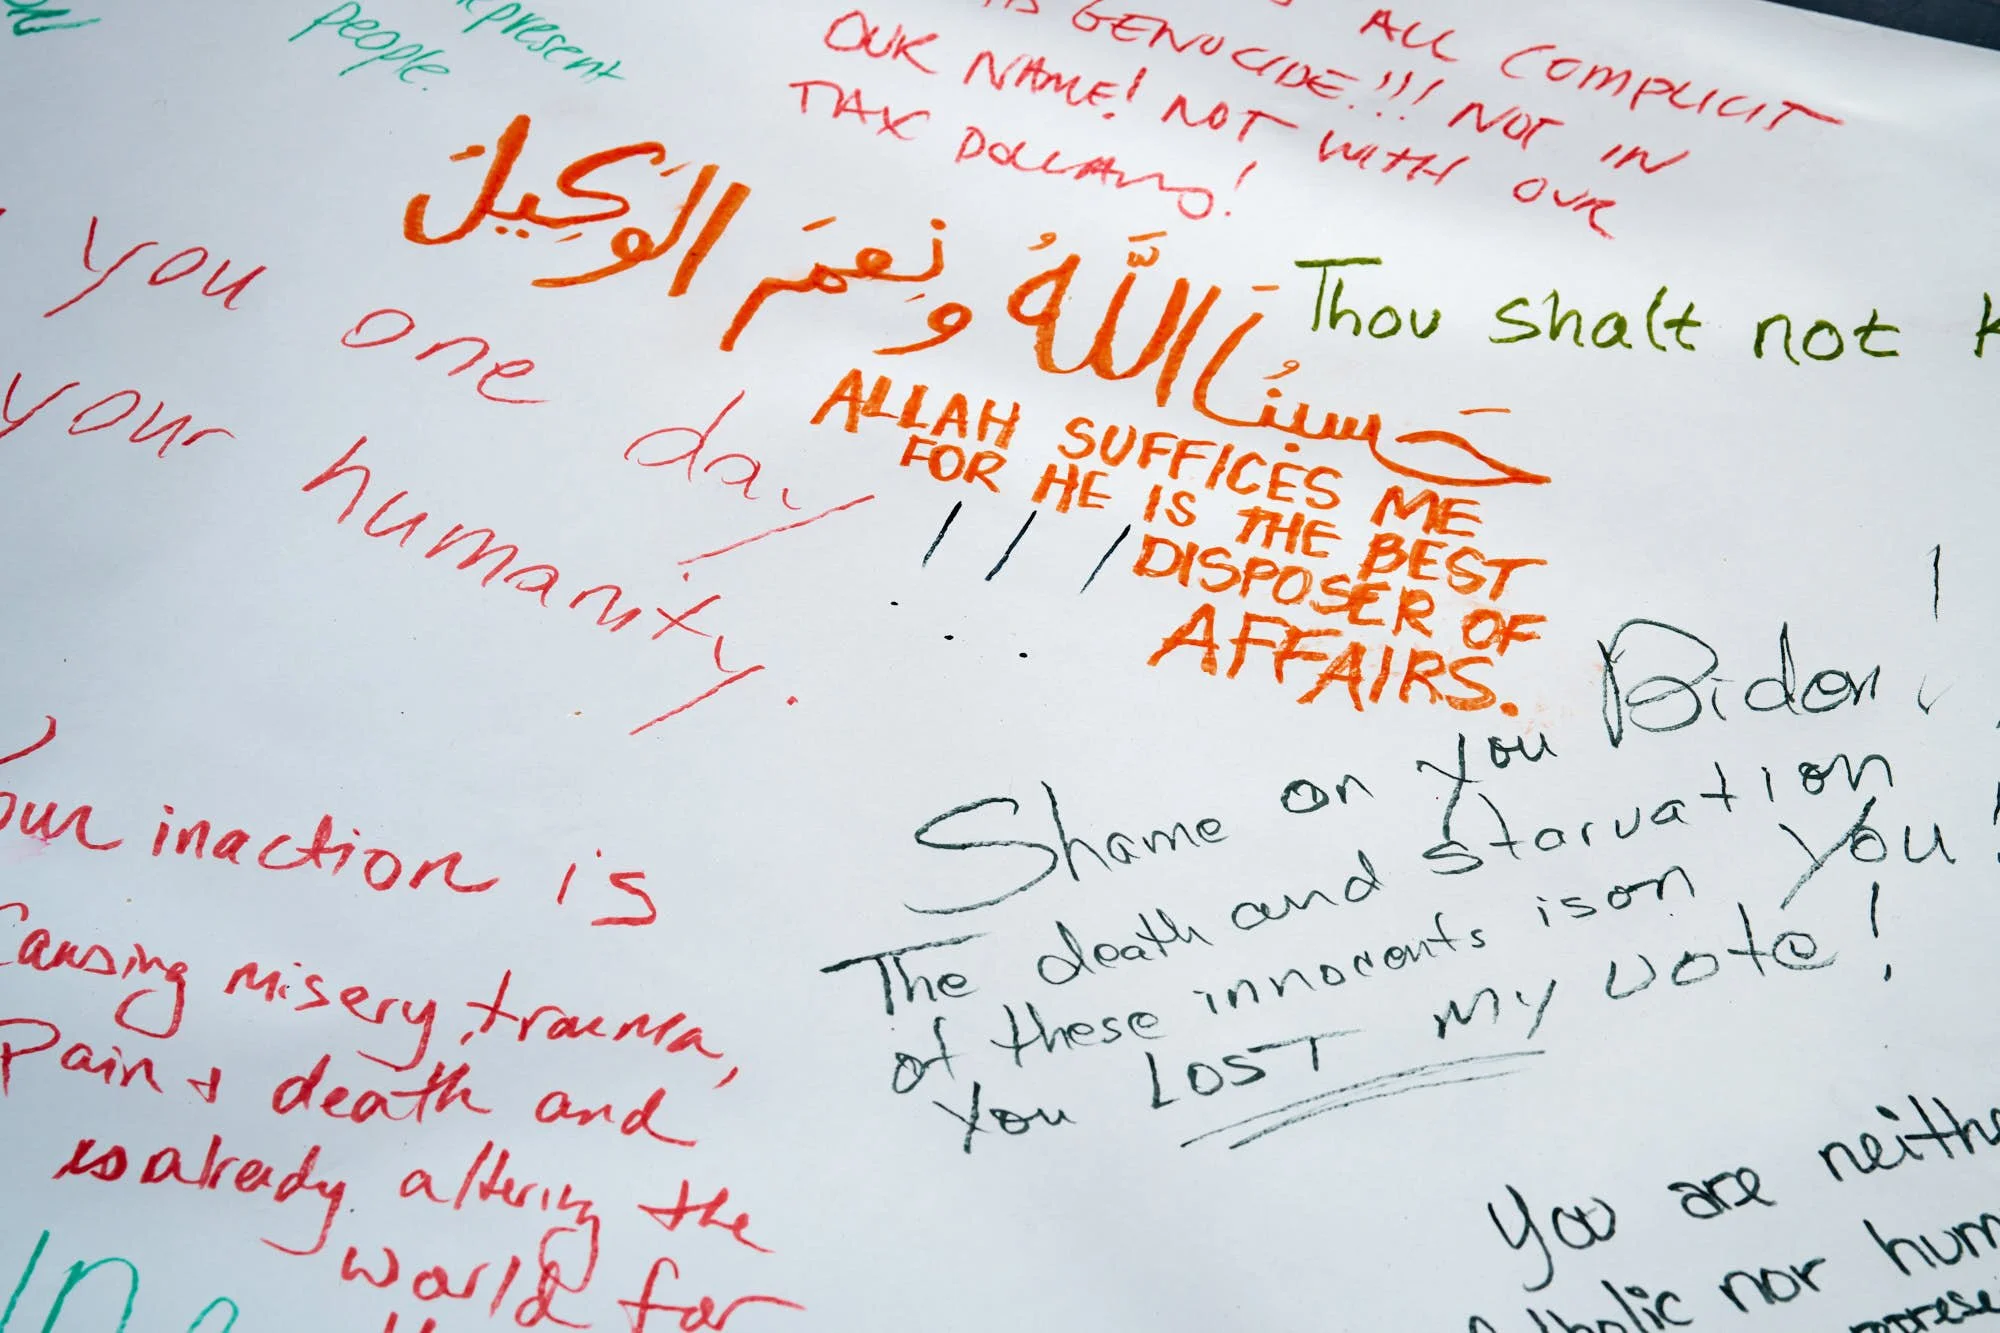 represent
people.
ALL COMPLICIT
GENOCIDE!!! NOT IN
OUR NAME! NOT WITH OUR
TAX DOLLARS!
حَسبُنَا اللَّهُ ونِعمَ الوَكِيلَ
ALLAH SUFFICES ME
FOR HE IS THE BEST
DISPOSER OF
AFFAIRS.
Thou shalt not
you one day
your humanity.
Shame on you Biden!
The death and starvation
of these innocents is on you!
You LOST My vote!
our inaction is
Causing misery, trauma,
Pain + death and
is already altering the
world for
You are
nor